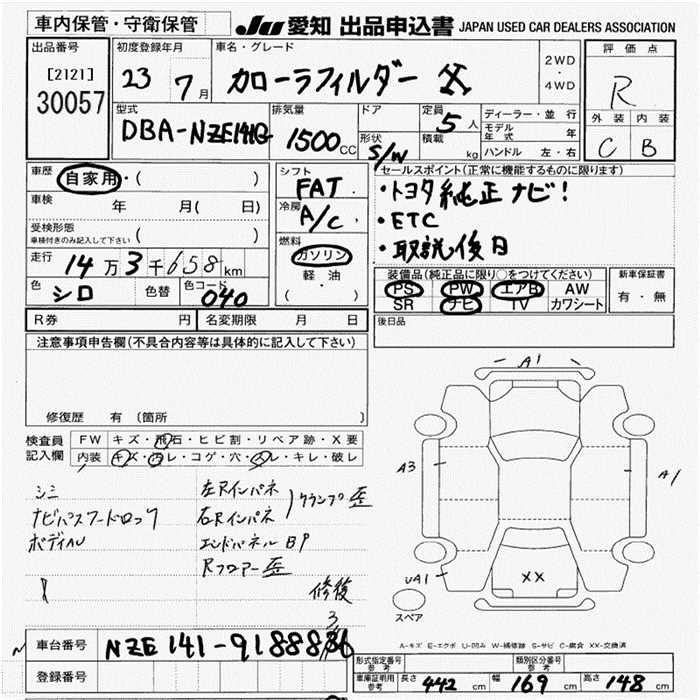 車内保管・守衛保管
JU 愛知 出品申込書 JAPAN USED CAR DEALERS ASSOCIATION
出品番号
[2121]
30057
初度登録年月
23 7月
車名・グレード
カローラフィルダー X
2WD・4WD
評価点
R
外装 内装
C B
型式
DBA-NZE141G
排気量
1500CC
ドア
形状
S/W
定員
5人
積載
kg
ディーラー・並行
モデル年式 年
ハンドル 左・右
車歴 自家用・( )
車検 年 月( 日)
受検形態
車検付きのみ記入して下さい ( )
走行 14万3千658km
色 シロ 色替 色コード 040
シフト
FAT
冷房
A/C
燃料
ガソリン
軽・油
( ・ )
セールスポイント(正常に機能するものに限ります)
・トヨタ純正ナビ!
・ETC
・取説後日
装備品(純正品に限り○をつけてください)
PS PW エアB AW
SR ナビ TV カワシート
新車保証書
有・無
R券 円 名変期限 月 日
後日品
注意事項申告欄(不具合内容等は具体的に記入して下さい)
修復歴 有 〔箇所 〕
検査員記入欄
FW キズ・飛石・ヒビ割・リペア跡・X要
内装 キズ・汚レ・コゲ・穴・スレ・キレ・破レ
シミ
ナビパスワードロック
ボディAU
左Rインパネ
右Rインパネ
クランプ歪
エンドパネルBP
Rフロアー歪
修復
3
A1
A3
A1
UA1
XX
スペア
A-キズ E-エクボ U-凹み W-補修跡 S-サビ C-腐食 XX-交換済
車台番号 NZE141-9188886
登録番号
形式指定番号 参考
類別区分番号 参考
車庫証明用 参考 長さ 442 cm 幅 169 cm 高さ 148 cm